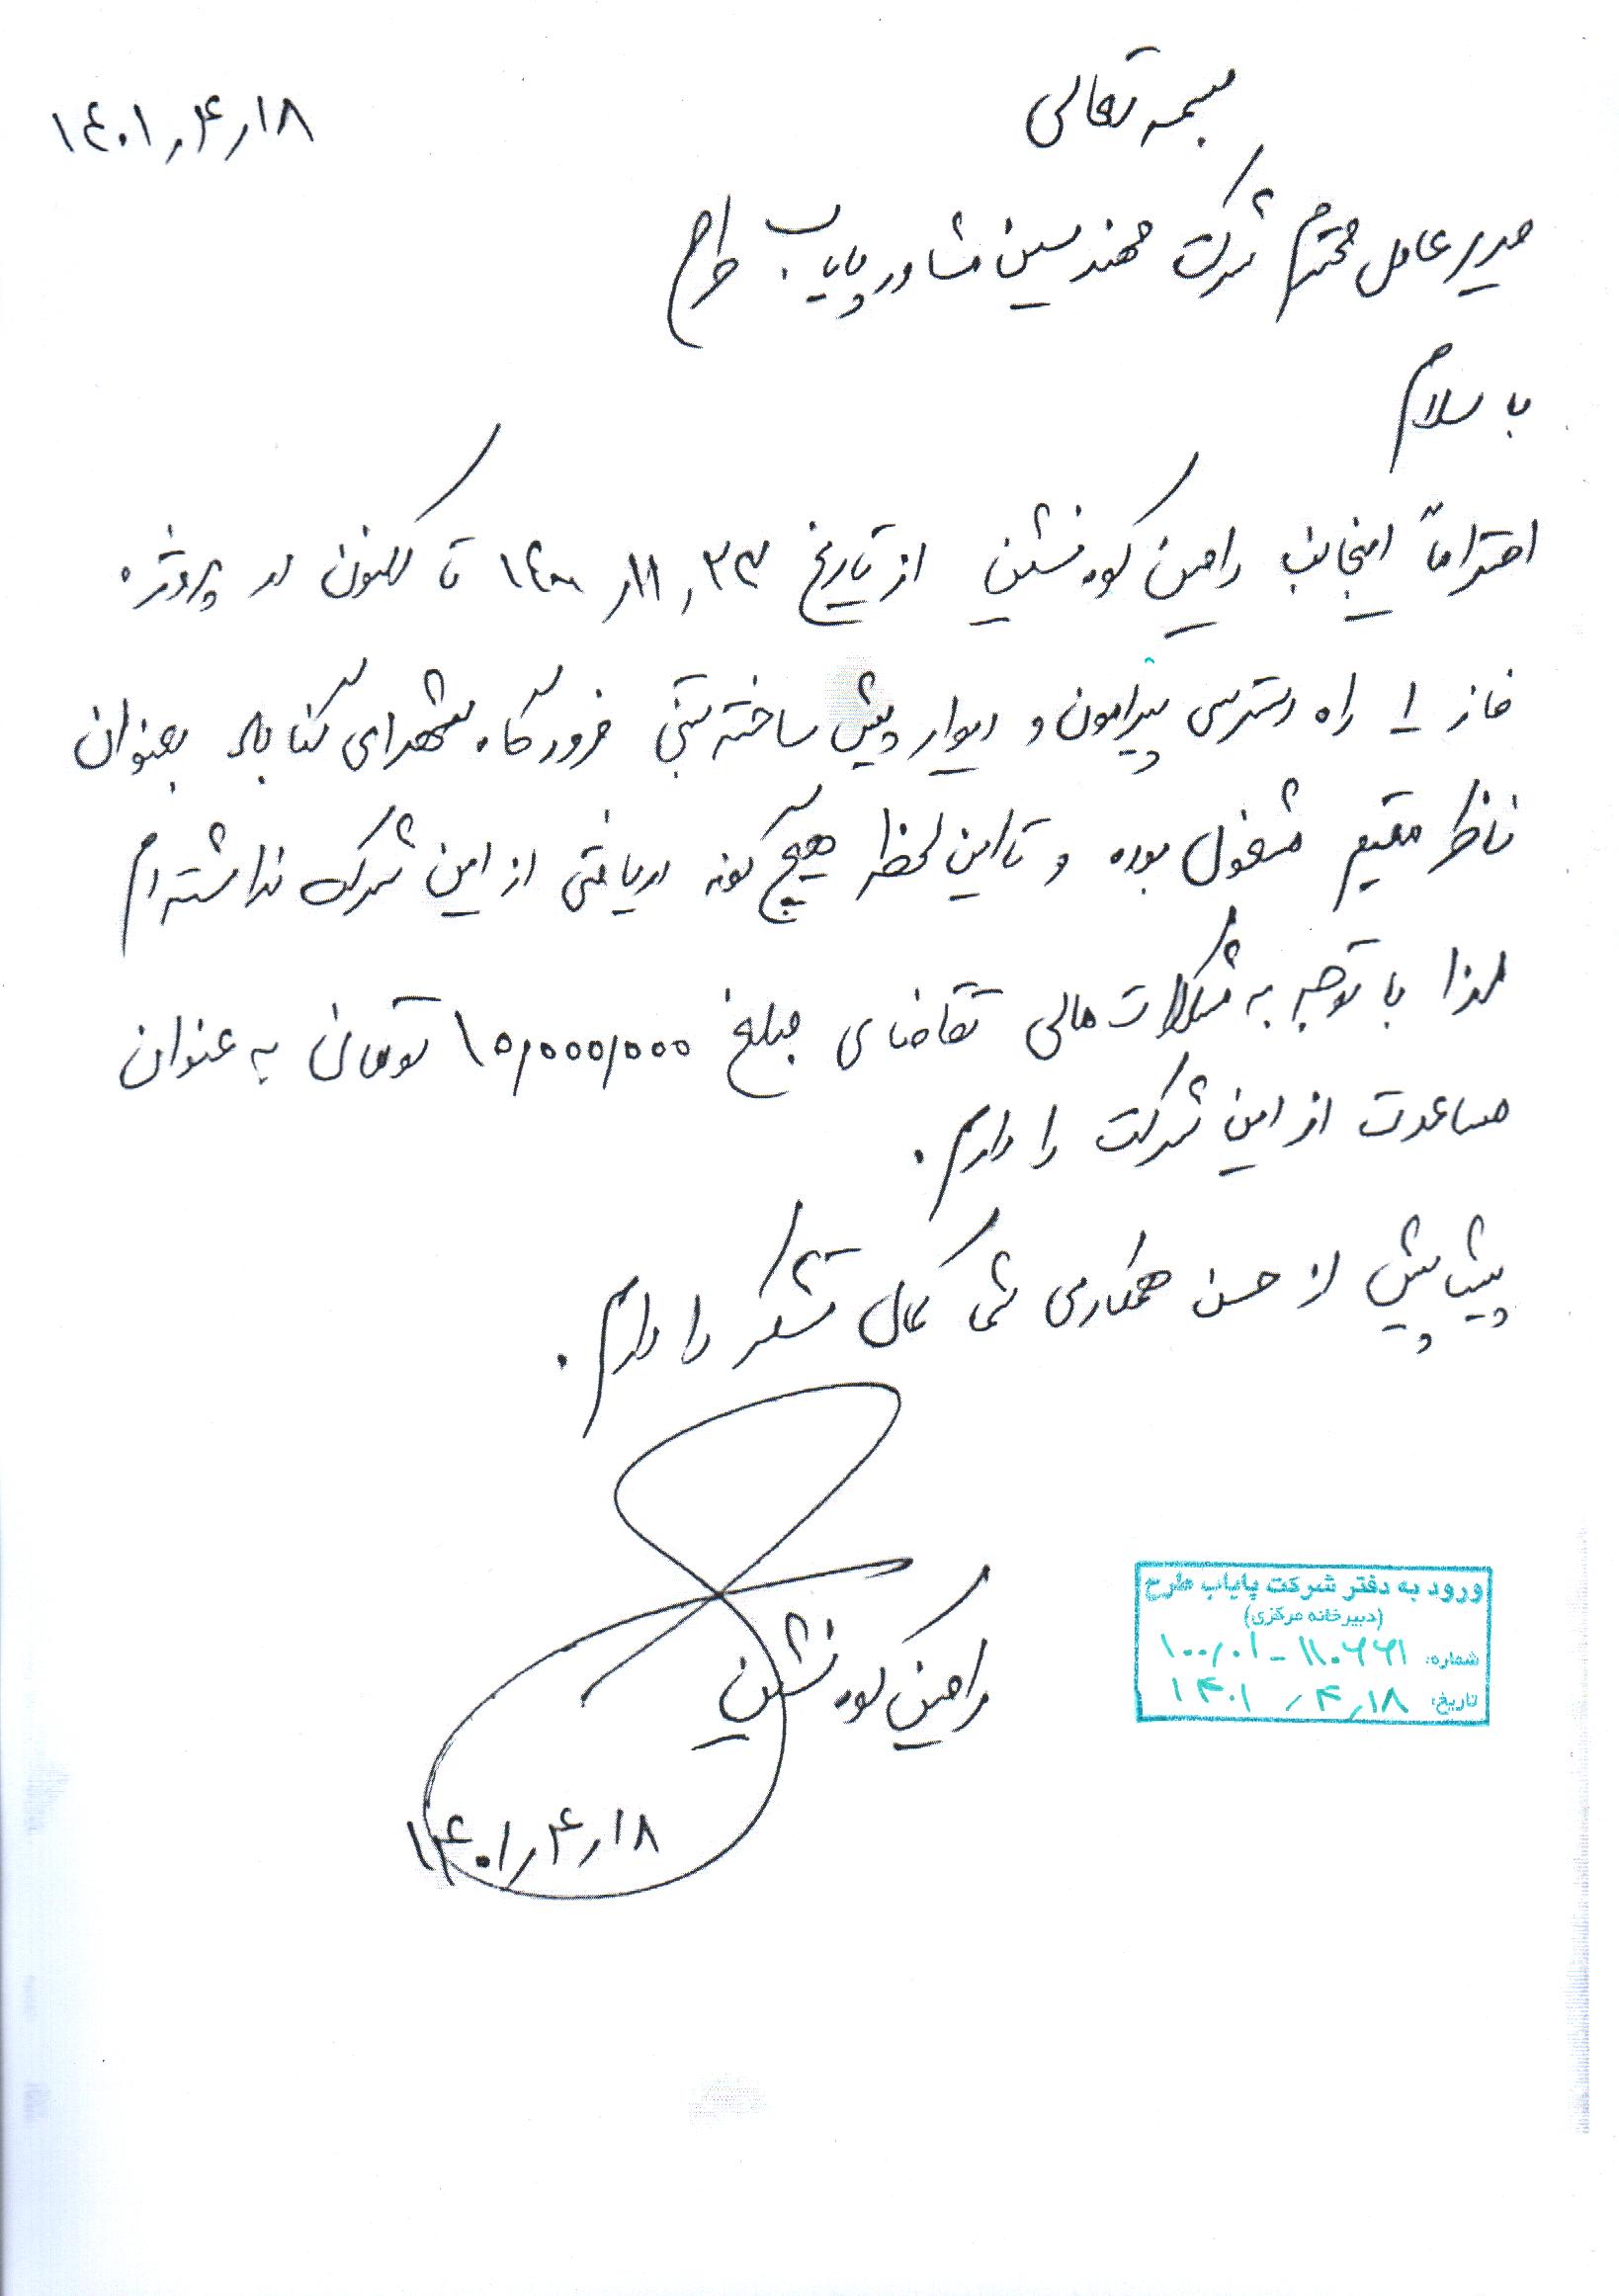 بسمه تعالی
۱۴۰۱,۴,۱۸
مدیر عامل محترم شرکت مهندسین مشاور پایاب طرح
با سلام
احتراماً اینجانب رامین کوه نشین از تاریخ ۱۴۰۰,۱۱,۲۳ تا کنون در پروژه
فاز ۱ راه دسترسی پیرامون و دیوار پیش ساخته بتنی فرودگاه شهدای بعنوان
ناظر مقیم مشغول بوده و تا این لحظه هیچ گونه دریافتی از این شرکت نداشته ام
لذا با توجه به مشکلات مالی تقاضای مبلغ ۱۰,۰۰۰,۰۰۰ تومان به عنوان
مساعدت از این شرکت را دارم.
پیشاپیش از حسن همکاری شما کمال تشکر را دارم.
رامین کوه نشین
۱۴۰۱,۴,۱۸
ورود به دفتر شرکت پایاب طرح
(دبیرخانه مرکزی)
شماره: ۱۰۰,۰۱-۱۱۰۶۶۱
تاریخ: ۱۴۰۱,۴,۱۸